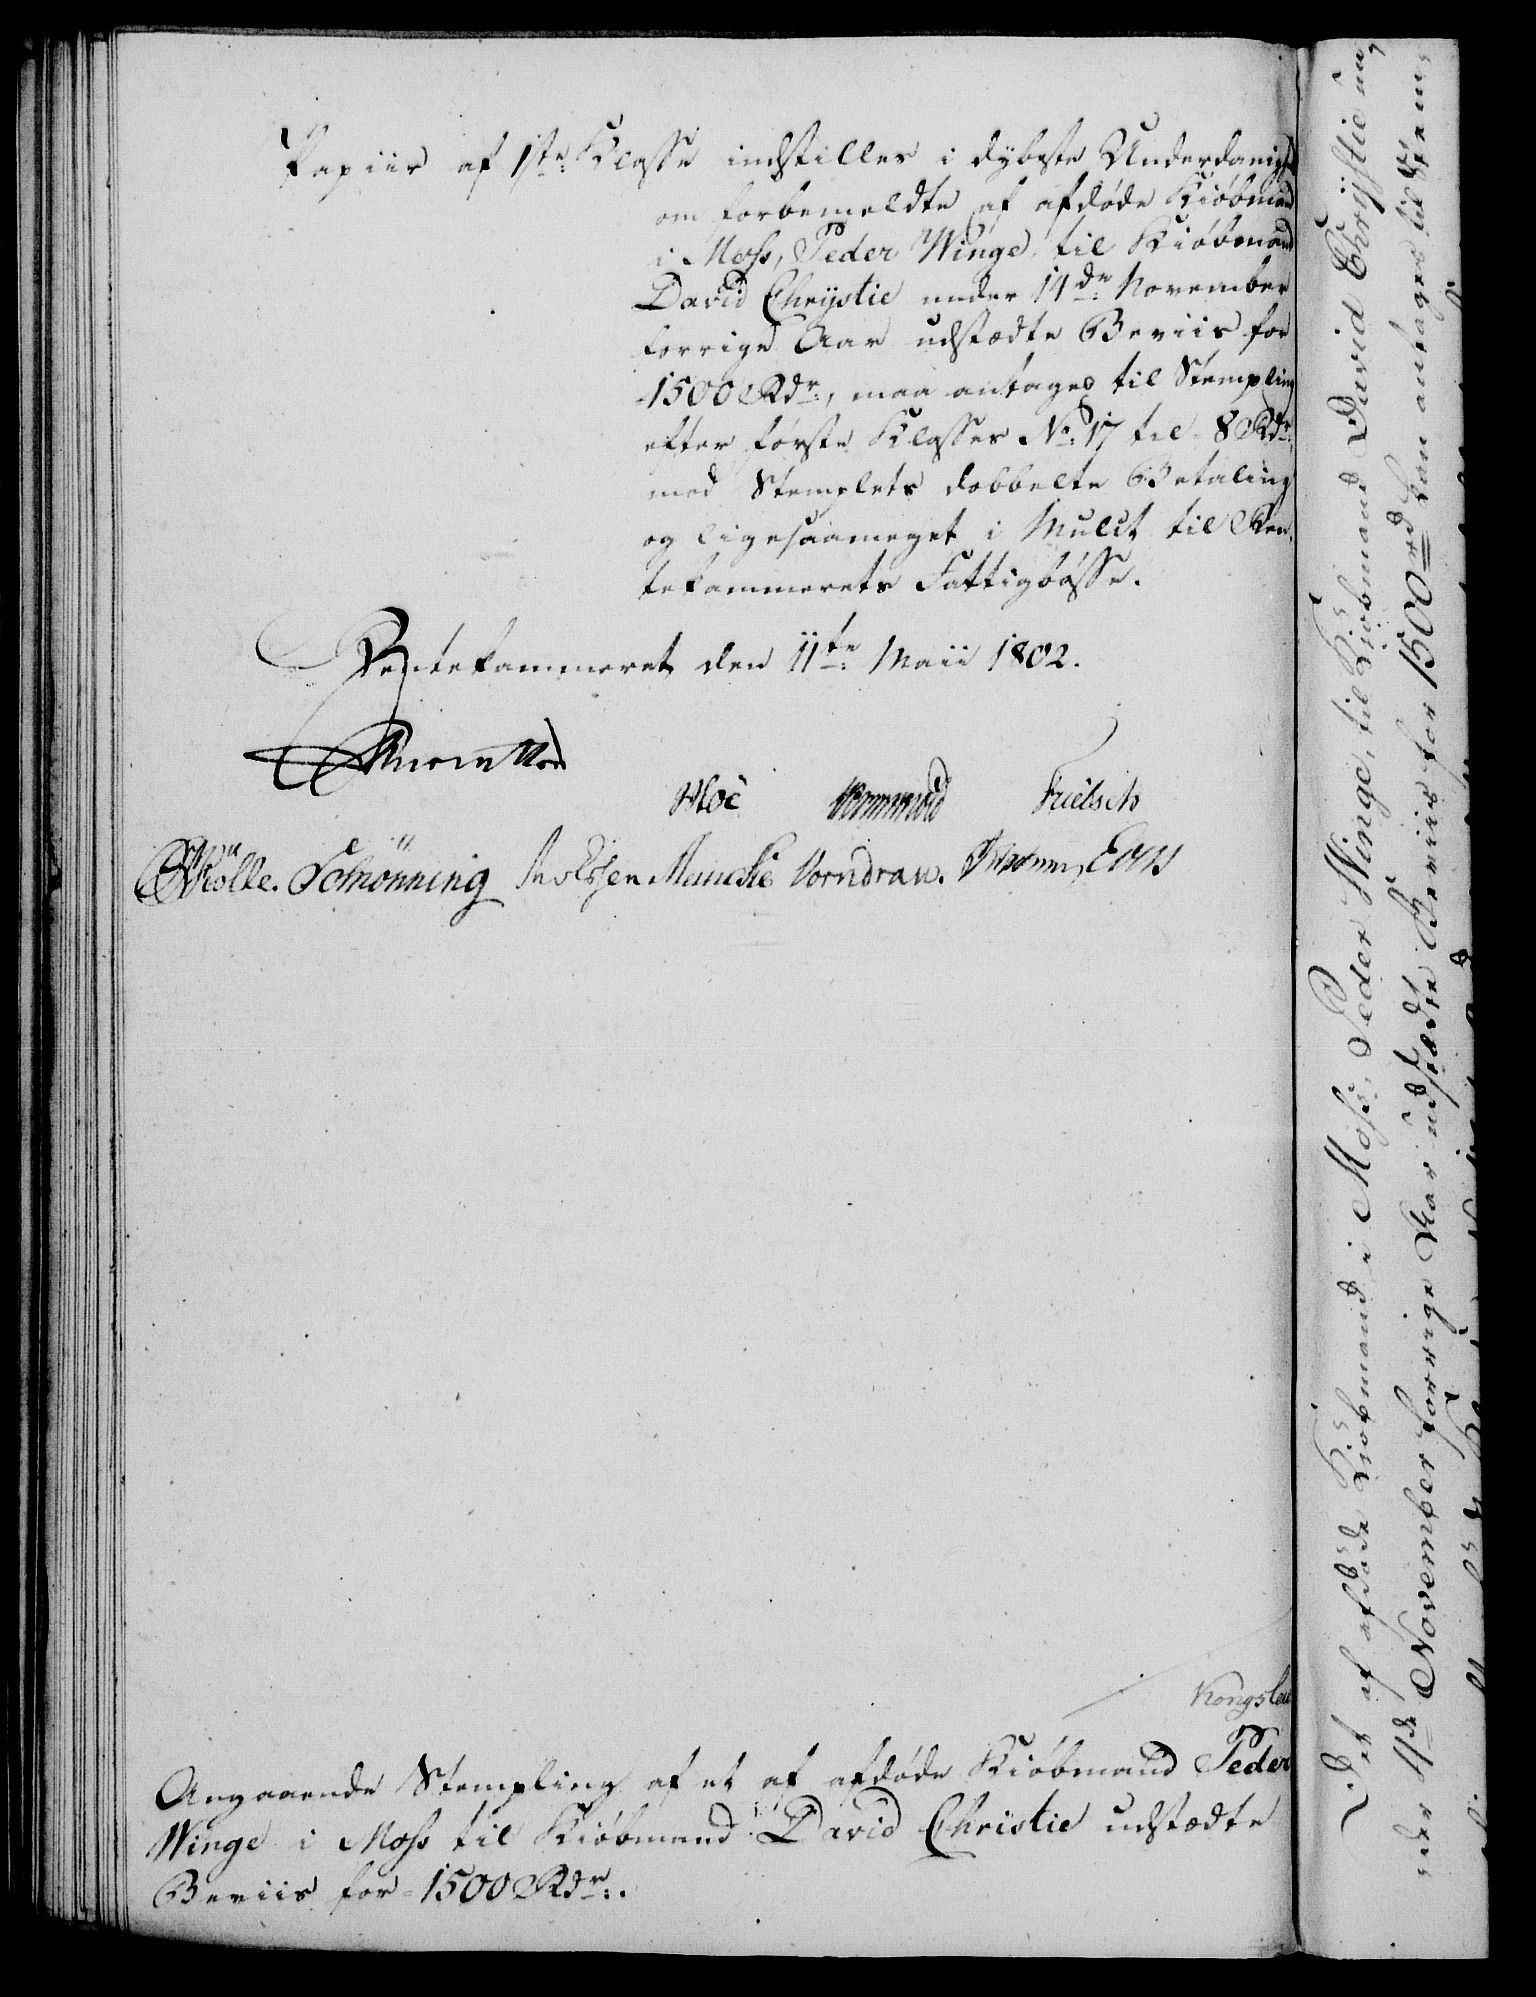 Papiir af 1ste Klasse indstilles i dybeste Underdanigst
om forbemeldte af afdøde Kiøbmand
i Moss, Peder Winge, til Kiøbmand
David Chrystie under 14de November
forrige Aar udstædte Beviis for
1500 Rdr:, maa antages til Stempling
efter første Klasses No: 17 til 8 Rdr:,
med Stemplets dobbelte Betaling
og ligesaameget i Mulct til Ren,
tekammerets Fattigbøsse.
Rentekammeret den 11te Maii 1802.
Wormskiold Frielsch
Kølle. Schønning Meincke Vorndran.
Kongslew
Angaaende Stempling af et af afdøde Kiøbmand Peder
Winge i Moss til Kiøbmand David Christie udstædte
Beviis for 1500 Rdr:.
Det af afdøde Kiøbmand i Moss, Peder Winge, til Kiøbmand David Chrystie un,
der 14de November forrige Aar udstædte Beviis for 1500 rd kan antages til Stem,